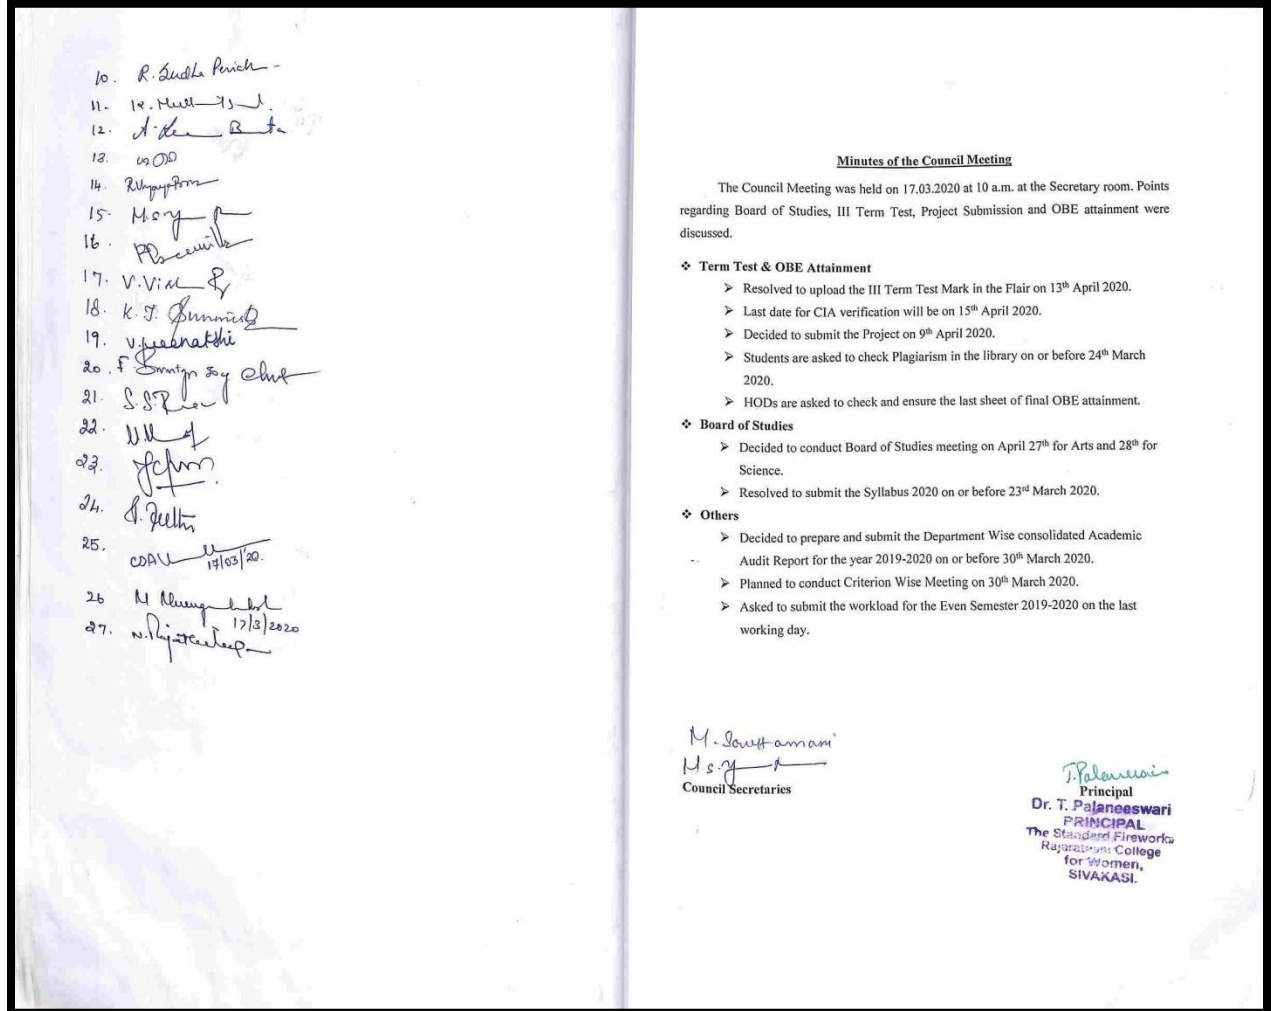 10. R. Sudha Periah
11.
12.
13.
14.
15.
16.
17.
18. K. J.
19. V. Meenakshi
20.
21.
22.
23.
24.
25. 17/03/'20.
26 M
17/3/2020
27.
Minutes of the Council Meeting
The Council Meeting was held on 17.03.2020 at 10 a.m. at the Secretary room. Points
regarding Board of Studies, III Term Test, Project Submission and OBE attainment were
discussed.
❖ Term Test & OBE Attainment
➢ Resolved to upload the III Term Test Mark in the Flair on 13th April 2020.
➢ Last date for CIA verification will be on 15th April 2020.
➢ Decided to submit the Project on 9th April 2020.
➢ Students are asked to check Plagiarism in the library on or before 24th March
2020.
➢ HODs are asked to check and ensure the last sheet of final OBE attainment.
❖ Board of Studies
➢ Decided to conduct Board of Studies meeting on April 27th for Arts and 28th for
Science.
➢ Resolved to submit the Syllabus 2020 on or before 23rd March 2020.
❖ Others
➢ Decided to prepare and submit the Department Wise consolidated Academic
Audit Report for the year 2019-2020 on or before 30th March 2020.
➢ Planned to conduct Criterion Wise Meeting on 30th March 2020.
➢ Asked to submit the workload for the Even Semester 2019-2020 on the last
working day.
M.
Council Secretaries
Principal
Dr. T. Palaneeswari
PRINCIPAL
The Standard Fireworks
Rajaratnam College
for Women,
SIVAKASI.